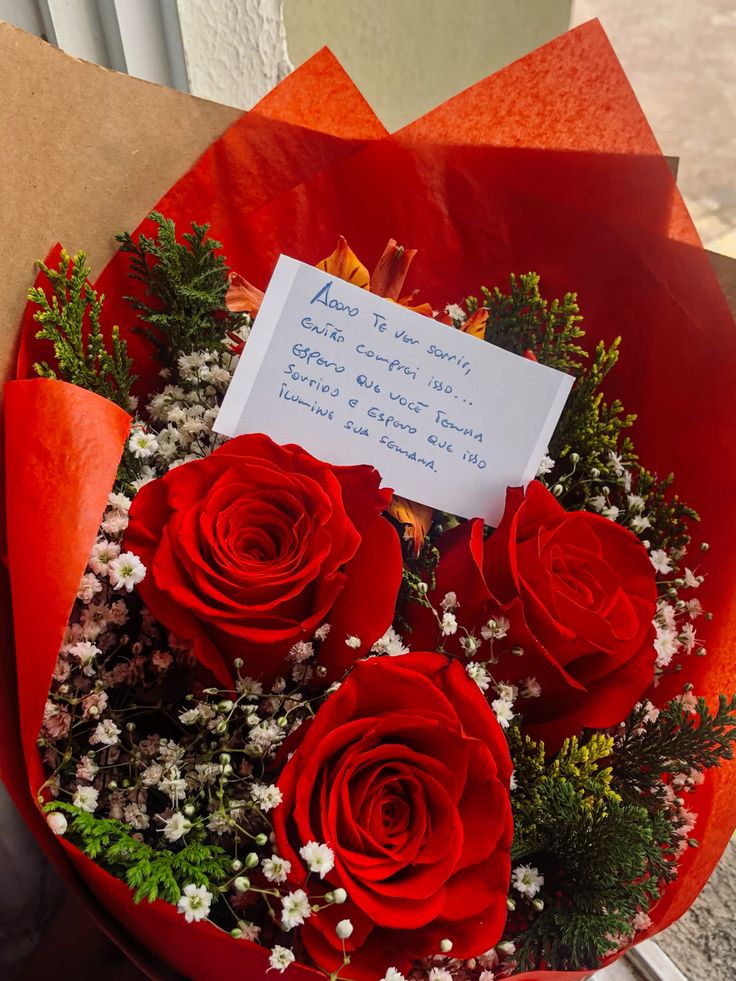 ADORO TE VER SORRIR,
ENTÃO COMPREI ISSO...
ESPERO QUE VOCÊ TENHA
SORRIDO E ESPERO QUE ISSO
ILUMINE SUA SEMANA.